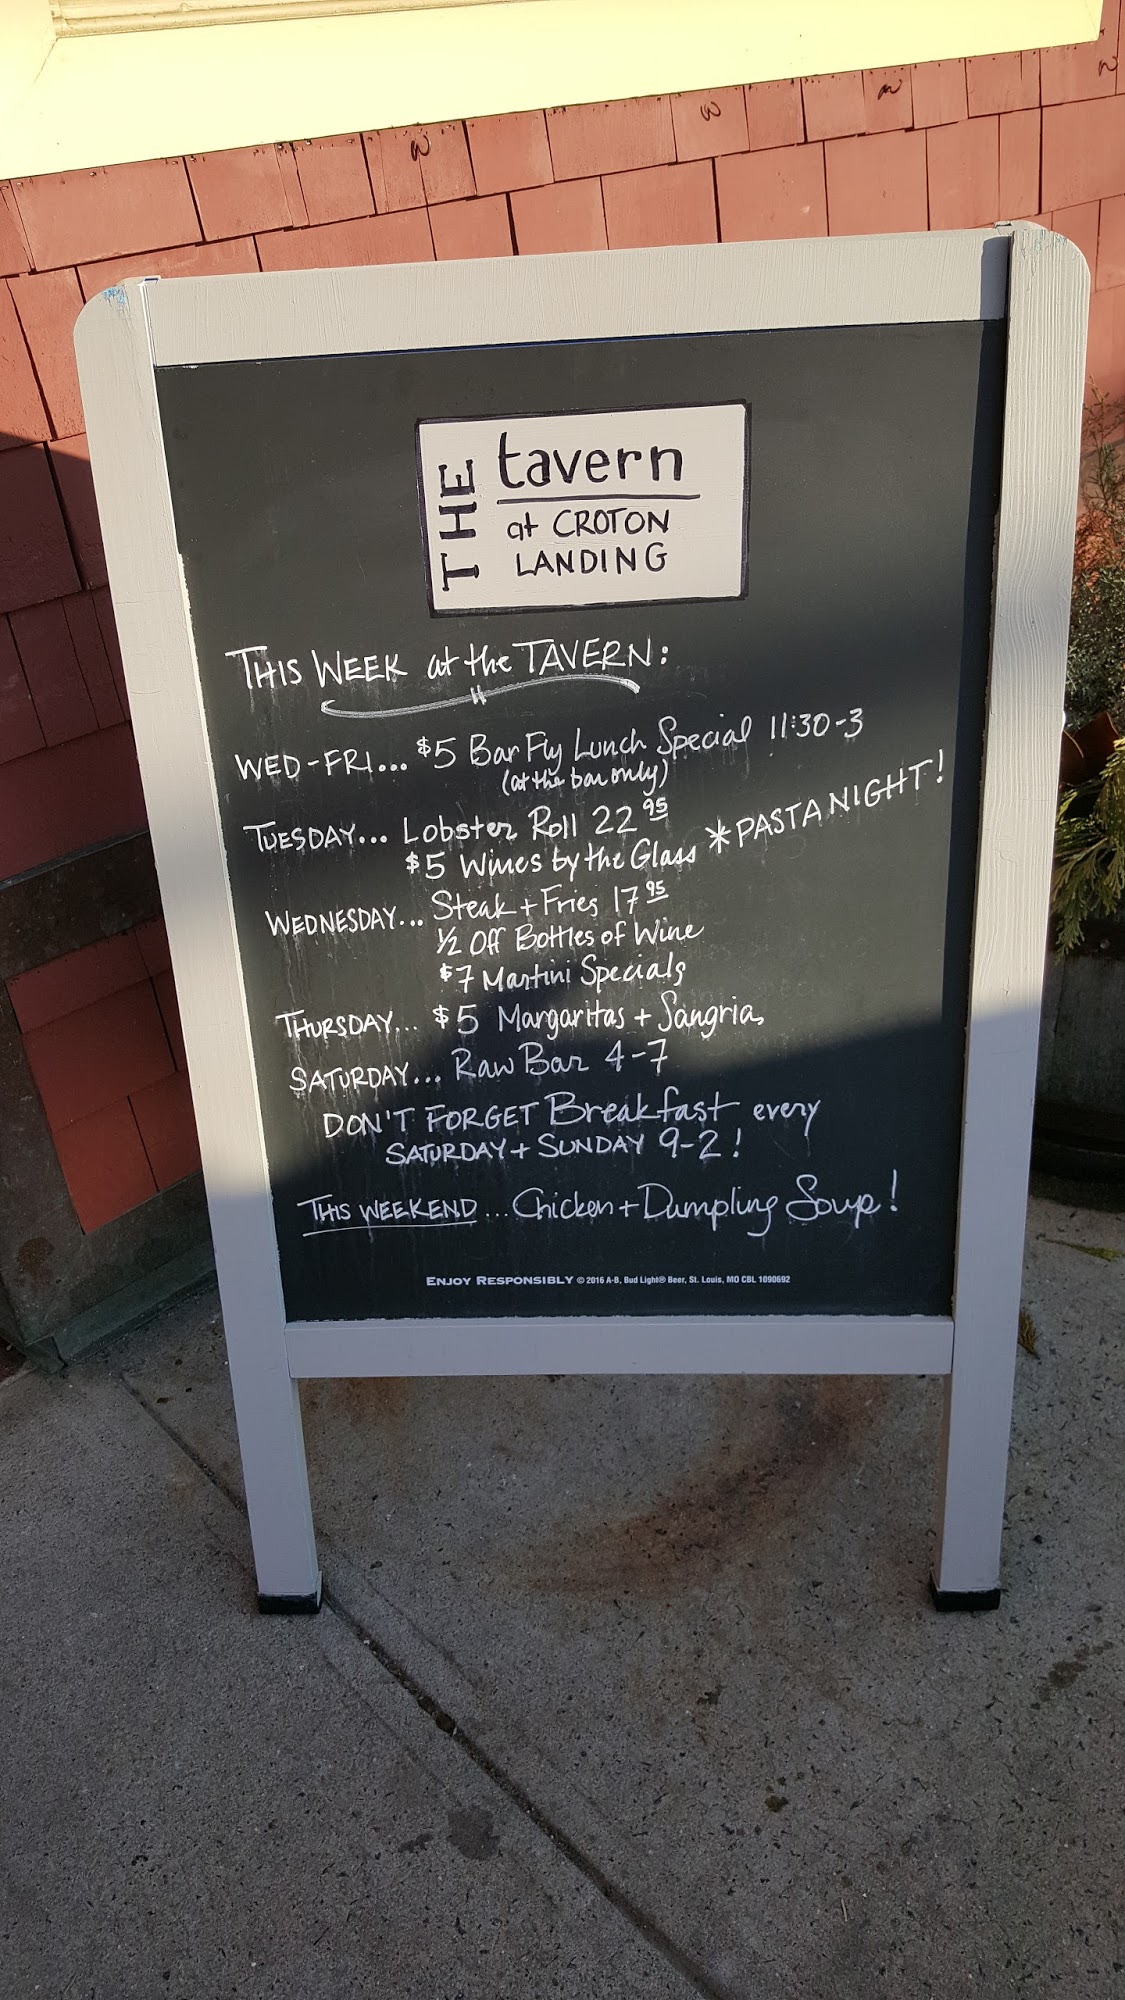 THE
tavern
at CROTON
LANDING
THIS WEEK at the TAVERN:
WED-FRI... $5 Bar Fly Lunch Special 11:30-3
(at the bar only)
TUESDAY... Lobster Roll 22 95
$5 Wines by the Glass *PASTA NIGHT!
WEDNESDAY... Steak + Fries 17 95
1/2 Off Bottles of Wine
$7 Martini Specials
THURSDAY... $5 Margaritas + Sangria
SATURDAY... Raw Bar 4-7
DON'T FORGET Breakfast every
SATURDAY + SUNDAY 9-2!
THIS WEEKEND... Chicken + Dumpling Soup!
ENJOY RESPONSIBLY © 2016 A-B, Bud Light® Beer, St. Louis, MO CBL 1090692